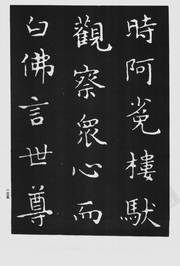 時阿㝹樓馱
觀察衆心而
白佛言世尊